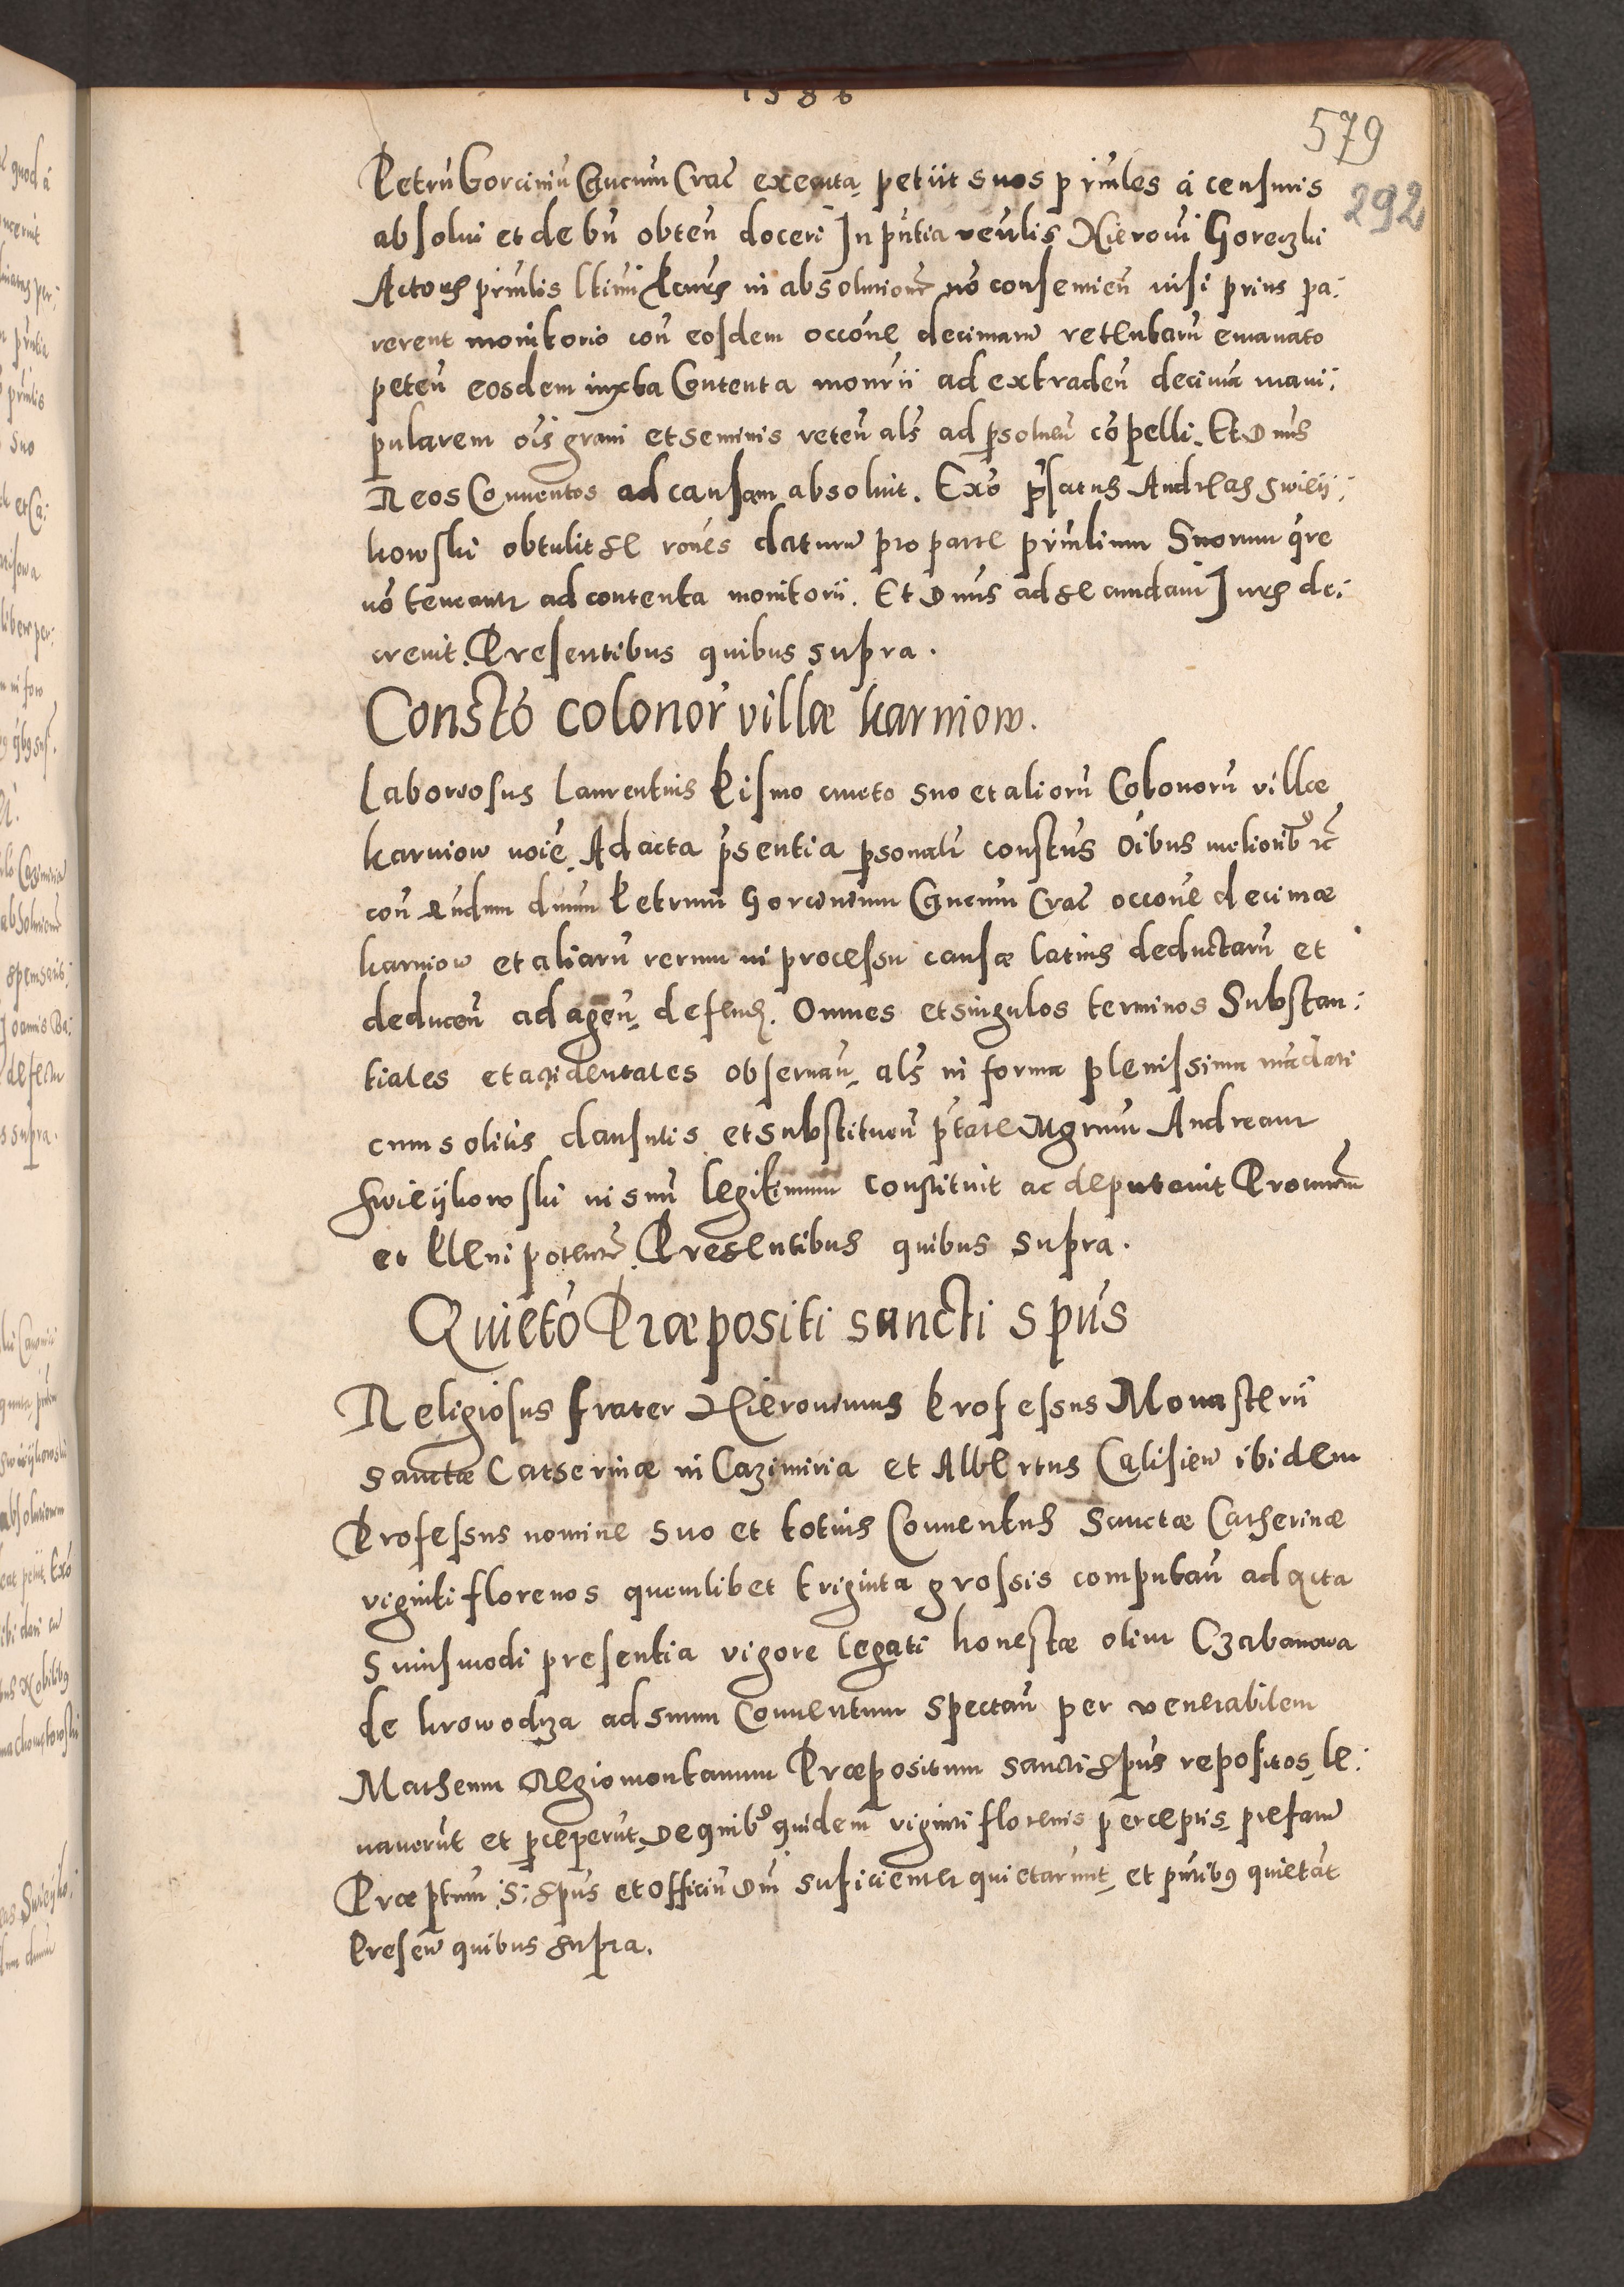 1586
579
292
Petrū Gorcinū Cānucum Crac̄ executa, petiit suos p̄rinles à censuris
absolui et de bn̄ obten̄ doceri In pn̄tia venlis Hieroni Goreczki
Actoris prinlis ltimi in absolutionē nō consentien̄ nisi prius pa:
rerent monitorio con̄ eosdem occōne decimarū retentarū emanato
peten̄ eosdem iuxta Contenta monrii ad extraden̄ decimā mani:
pularem oīs grani et seminis reten̄ als ad psoluen̄ cōpelli. Et Dnus
Reos Conuentos ad causam absoluit. Exō p̄fatus Andreas Swieij:
kowski obtulit se rōnes daturū pro parte prinlium Suorum q̄re
nō teneantr ad contenta monitorii. Et Dnus ad secundam Iuris de:
creuit. Presentibus quibus supra.
Constō colonor̄ villæ karniow.
Laboriosus Laurentius Kismo cmeto suo et aliorū Colonorū villæ
karniow noīe Ad acta p̄sentia psonalr̄ constus oībus meliorib' rc̄
con̄ dnum Petrum Gorcinium Cānucum Crac̄ occōne decimæ
karniow et aliarū rerum in processu causæ latius deductarū et
deducen̄ ad agen̄, defend. Omnes et singulos terminos Substan:
tiales et accidentales obseruan̄, als in forma plenissima mādati
cum solitis clausulis et substituen̄ p̄tate Mgrum Andream
Swieijkowski in suū legitimum constituit ac deputauit Procurem̄
et Pleni potentē. Presentibus quibus supra.
Quietō Præpositi sancti Spūs
Religiosus frater Hieronimus Professus Monasterii
sanctæ Catherinæ in Cazimiria et Albertus Calisien̄ ibidem
Professus nomine suo et totius Conuentus Sanctæ Catherinæ
viginti florenos quemlibet triginta grossis computan̄ ad acta
huiusmodi presentia vigore legati honestæ olim Czabanowa
de krowodrza ad suum Conuentum spectan̄ per venerabilem
Matheum Regiomontanum Præpositum sancti Spūs repositos, le:
uauerūt et pceperūt, De quib' quidem viginti florenis perceptis, prefatū
Præptum S: Spūs et Officiū Dn̄i suficienter quietarunt, et pn̄tibq quietāt
Presen̄ quibus supra.